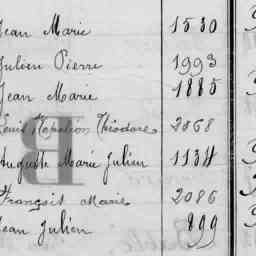 Jean Marie 1530
Julien Pierre 1993
Jean Marie 1885
Louis Napoléon Théodore 2068
Auguste Marie Julien 1134
François Marie 2086
Jean Julien 899